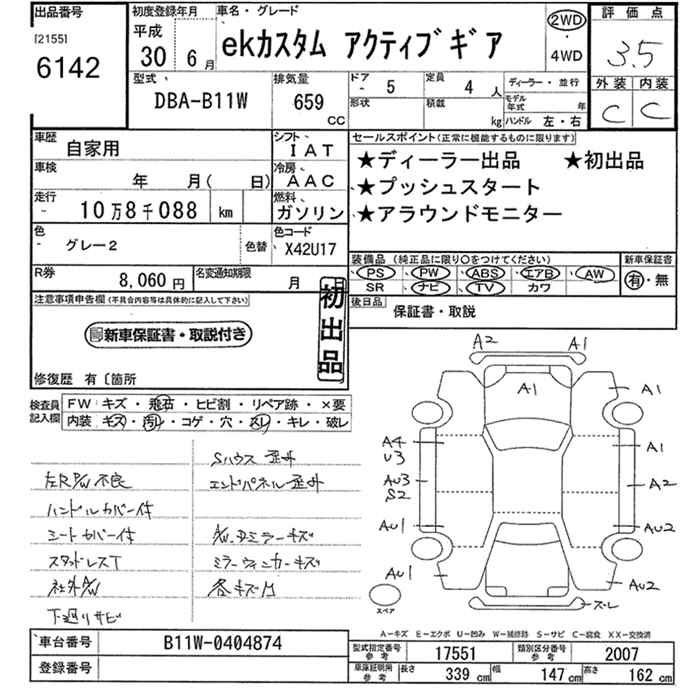 出品番号
[2155]
6142
初度登録年月
平成
30年 6月
車名・グレード
ekカスタム アクティブギア
2WD
・
4WD
評価点
3.5
外装 内装
C C
型式
DBA-B11W
排気量
659
CC
ドア
- 5
形状
定員
4 人
積載
kg
ディーラー・並行
モデル年式 年
ハンドル 左・右
車歴
自家用
車検
年 月( 日)
走行
10万8千088 km
色
グレー2
色替
シフト
IAT
冷房
AAC
燃料
ガソリン
色コード
X42U17
R券
8,060円
名変通知期限
月 日
セールスポイント(正常に機能するものに限ります)
★ディーラー出品 ★初出品
★プッシュスタート
★アラウンドモニター
装備品(純正品に限り○をつけてください)
PS PW ABS エアB AW
SR ナビ TV カワ
新車保証書
有・無
後日品
保証書・取説
注意事項申告欄(不具合内容等は具体的に記入して下さい)
新車保証書・取説付き
初出品
修復歴 有〔箇所
検査員記入欄
FW キズ・飛石・ヒビ割・リペア跡・×要
内装 キズ・汚レ・コゲ・穴・スレ・キレ・破レ
左RP/W不良
ハンドルカバー付
シートカバー付
スタッドレスT
社外A/W
下廻りサビ
Sハウス歪外
エンドパネル歪外
A/W、Dミラーキズ
ミラーウィンカーキズ
各キズ凹
A2 A1
A1
A1
A4
U3
A1
AU3
S2
A2
AU1
AU2
AU1
AU2
スレ
スペア
A-キズ E-エクボ U-凹み W-補修跡 S-サビ C-腐食 XX-交換済
車台番号
B11W-0404874
登録番号
型式指定番号参考
17551
類別区分番号参考
2007
車庫証明用参考
長さ 339 cm 幅 147 cm 高さ 162 cm